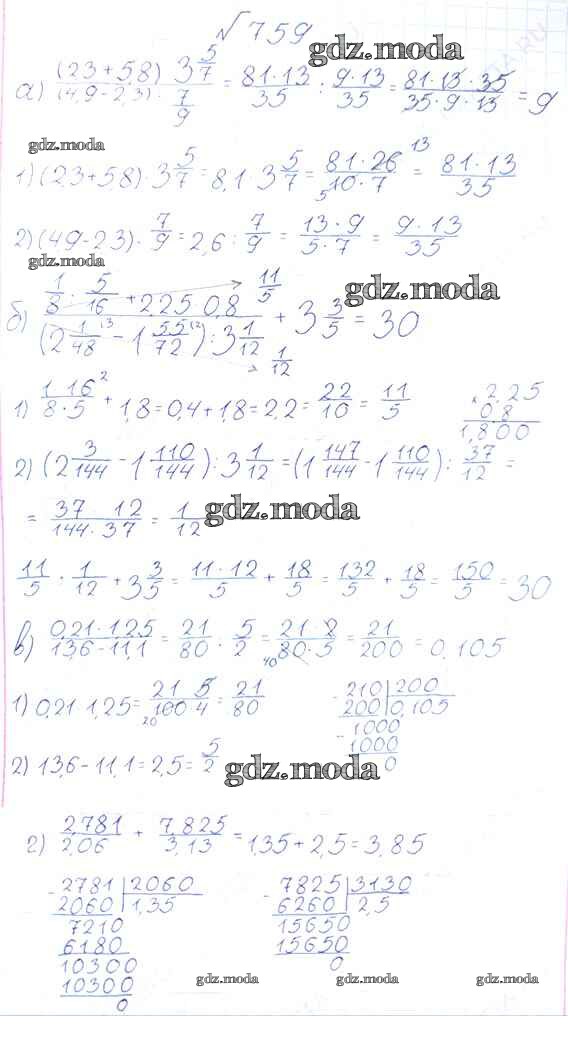 √ 759
gdz.moda
а) (23+58) 3 5/7 / (4,9-2,3) : 7/9 = 81·13/35 : 9·13/35 = 81·13·35/35·9·13 = 9
gdz.moda
1) (2,3+58)·3 5/7 = 8,1 3 5/7 = 81·26/10·7 = 81·13/35
5 13
2) (49-23)· 7/9 = 2,6 : 7/9 = 13·9/5·7 = 9·13/35
gdz.moda
б) 1/8 : 5/16 + 225 0,8 / (2 1/48 - 1 55/72) : 3 1/12 + 3 3/5 = 30
11/5
gdz.moda
1/12
1) 1 16/8·5 + 1,8 = 0,4 + 1,8 = 2,2 = 22/10 = 11/5
2
× 2,25
0,8
1,800
2) (2 3/144 - 1 110/144) : 3 1/12 = (1 147/144 - 1 110/144) : 37/12 =
= 37 12/144·37 = 1/12
gdz.moda
11/5 : 1/12 + 3 3/5 = 11·12/5 + 18/5 = 132/5 + 18/5 = 150/5 = 30
в) 0,21·1,25/13,6-11,1 = 21/80 : 5/2 = 21·2/80·5 = 21/200 = 0,105
40
1) 0,21 1,25 = 21 5/100·4 = 21/80
20
- 210 | 200
200 | 0,105
- 1000
1000
0
2) 13,6-11,1 = 2,5 = 5/2
gdz.moda
г) 2,781/2,06 + 7,825/3,13 = 1,35 + 2,5 = 3,85
- 2781 | 2060
2060 | 1,35
7210
6180
10300
10300
0
- 7825 | 3130
6260 | 2,5
15650
15650
0
gdz.moda gdz.moda gdz.moda